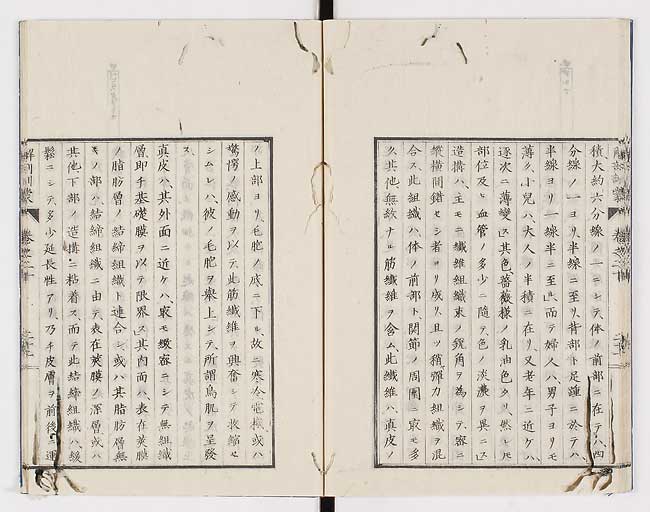 積大約六分線ノ一ニシテ体ノ前部ニ在テハ四
分線ノ一ヨリ半線ニ至リ背部ト足踵ニ於テハ
半線ヨリ一線半ニ至ル而テ婦人ハ男子ヨリモ
薄ク小兒ハ大人ノ半積ニ在リ又老年ニ近ケハ
逐次ニ薄變ス其色薔薇様ノ乳油色タリ然レモ
部位及ヒ血管ノ多少ニ隨テ色ノ淡濃ヲ異ニス
造構ハ主モニ纖維組織束ノ鋭角ヲ為シテ密ニ
縱横間錯セシ者ヨリ成リ且ツ稍彈力組織ヲ混
合ス此組織ハ体ノ前部ト關節ノ周圍ニ最モ多
ク其他無紋ナル筋纖維ヲ含ム此纖維ハ真皮ノ
ノ上部ヨリ毛胞ノ底ニ下ル故ニ寒冷電機或ハ
驚愕ノ感動ヲ以テ此筋纖維ヲ興奮シテ收縮セ
シムレハ彼ノ毛胞ヲ舉上シテ所謂鳥肌ヲ呈發
ス
真皮ハ其外面ニ近ケハ最モ緻密ニシテ無組織
層即チ基礎膜ヲ以テ限界ス其内面ハ表在莢膜
ノ脂肪層ノ結締組織ト連合シ或ハ其脂肪層無
キノ部ハ結締組織ニ由テ表在莢膜ノ深層或ハ
其他下部ノ造構ニ粘着ス而テ此結締組織ハ緩
鬆ニシテ多少延長性アリ乃チ皮層ヲ前後ニ運
解剖訓蒙